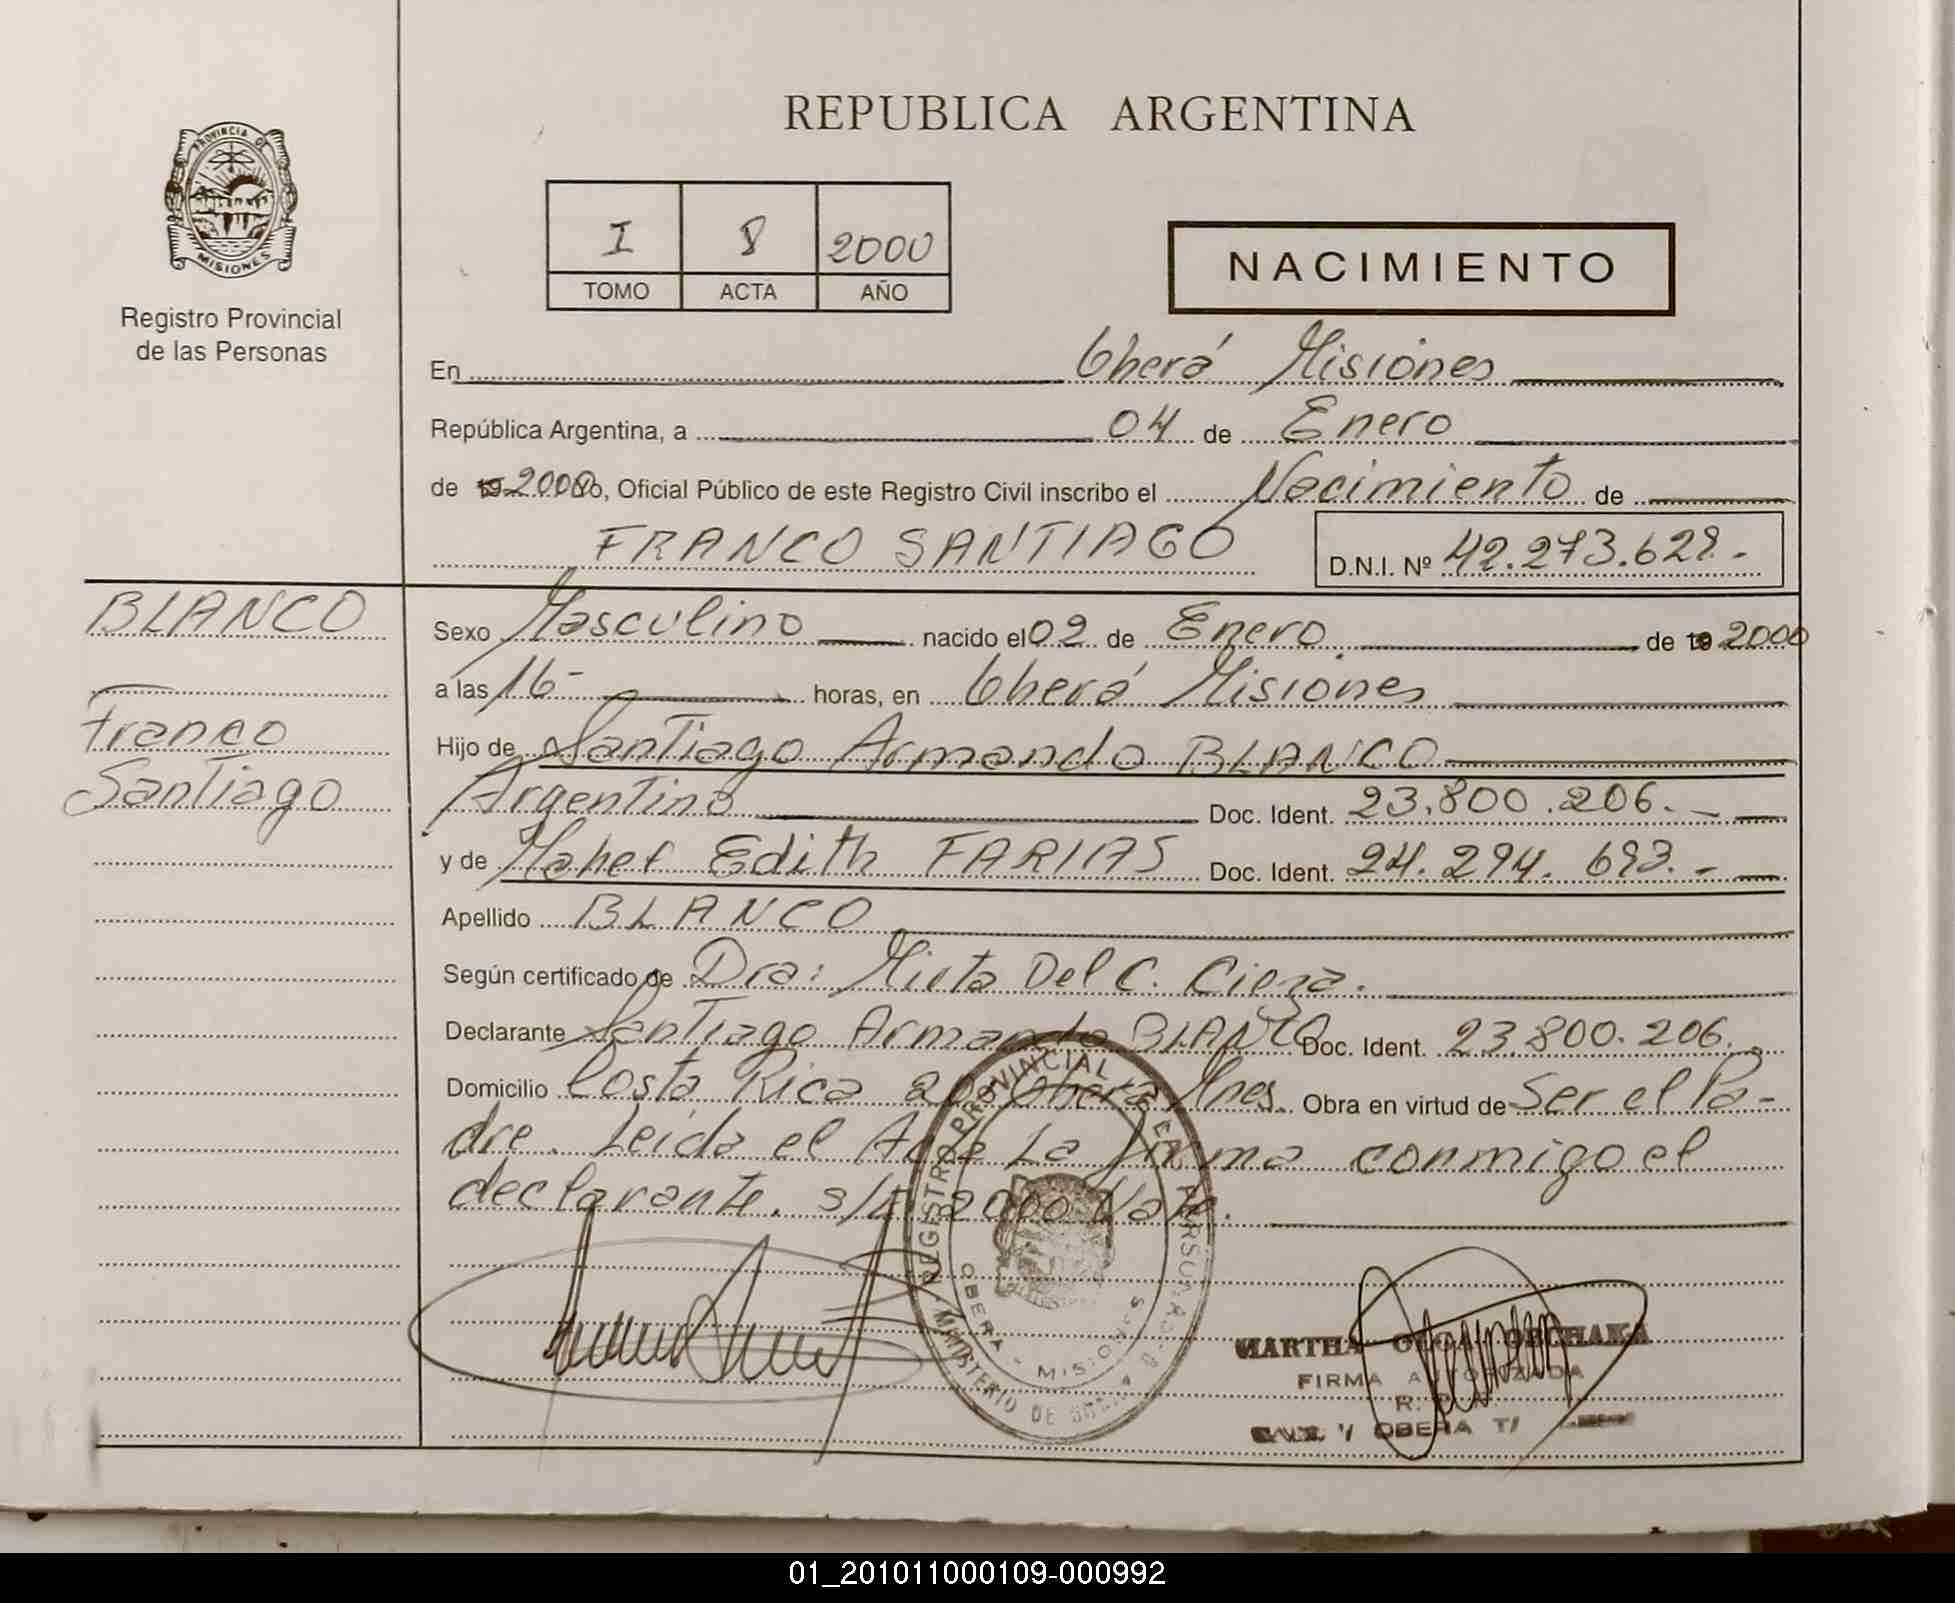 REPUBLICA ARGENTINA
PROVINCIA DE
MISIONES
Registro Provincial
de las Personas
I 8 2000
TOMO ACTA AÑO
NACIMIENTO
En Oberá Misiones
República Argentina, a 04 de Enero
de 19 2000 Yo, Oficial Público de este Registro Civil inscribo el Nacimiento de
FRANCO SANTIAGO D.N.I. Nº 42.273.628.-
BLANCO
Franco
Santiago
Sexo Masculino nacido el 02 de Enero de 19 2000
a las 16- horas, en Oberá Misiones
Hijo de Santiago Armando BLANCO
Argentino Doc. Ident. 23.800.206.-
y de Mabel Edith FARIAS Doc. Ident. 24.294.693.-
Apellido BLANCO
Según certificado de Dra: Mirta Del C. Cieza.
Declarante Santiago Armando BLANCO Doc. Ident. 23.800.206.
Domicilio Costa Rica Oberá Mnes. Obra en virtud de Ser el Pa-
dre. Leida el Acta La firma conmigo el
declarante. 2000 Vale.
REGISTRO PROVINCIAL DE LAS PERSONAS
OBERA - MISIONES
MINISTERIO DE
MARTHA OLGA
FIRMA AUTORIZADA
OBERA
01_201011000109-000992